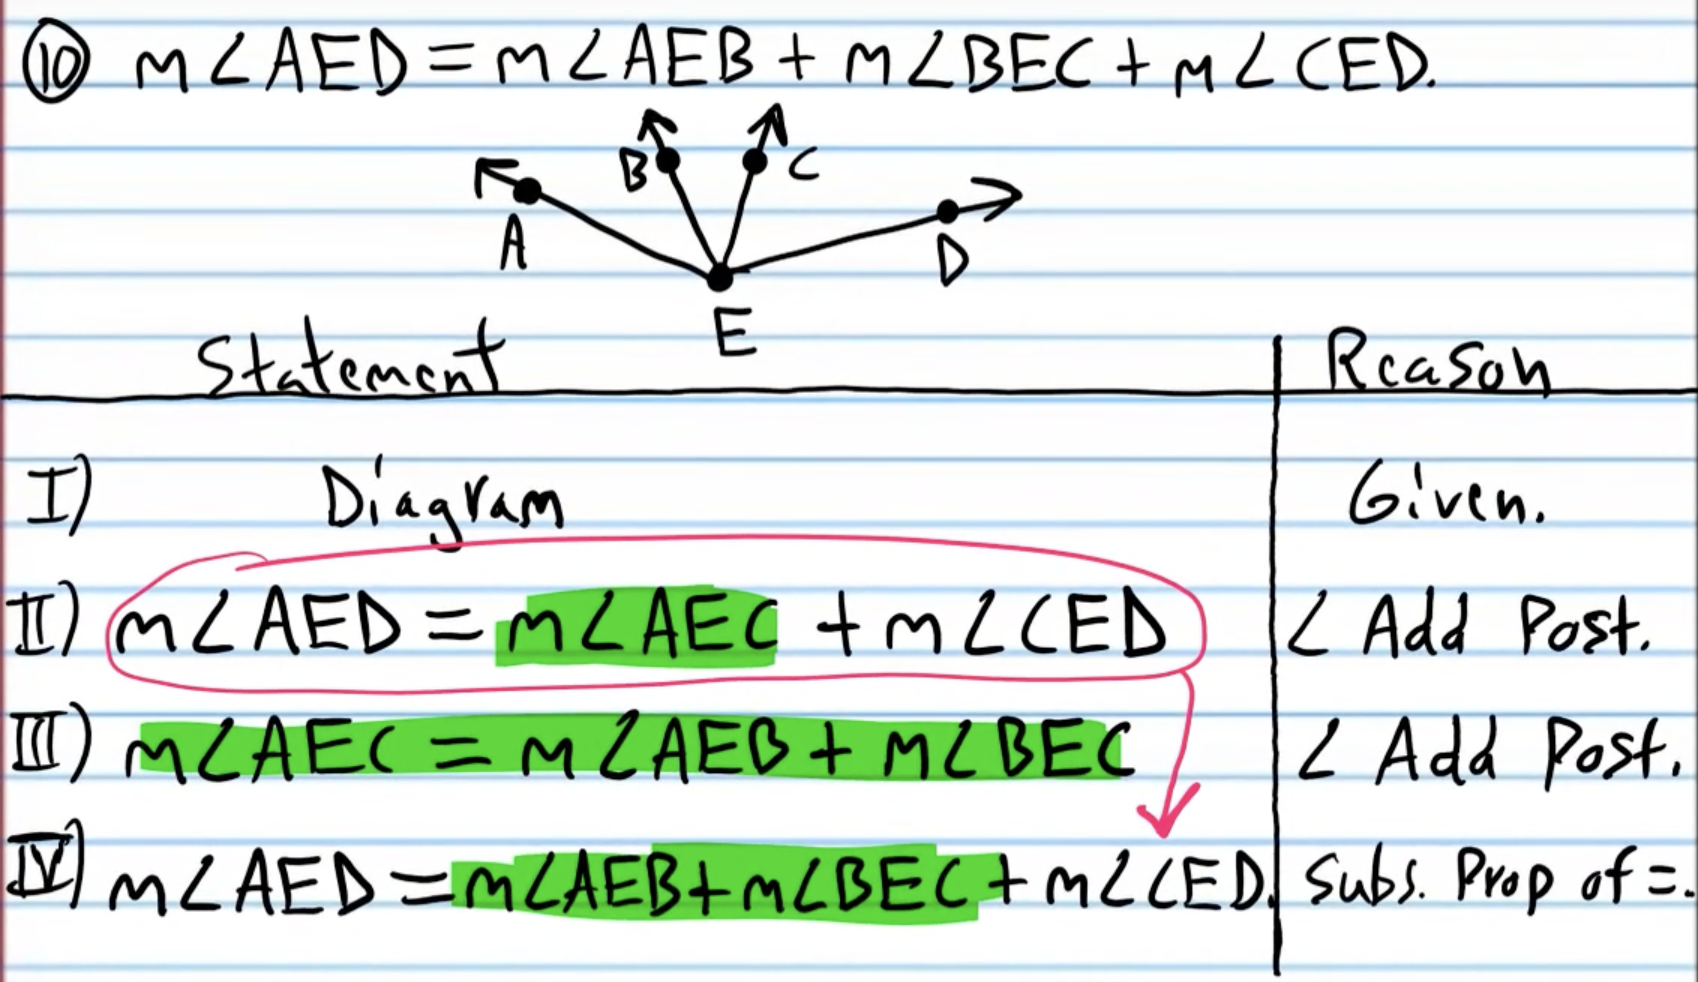 ⑩ m∠AED = m∠AEB + m∠BEC + m∠CED.
B C
A D
E
Statement Reason
I) Diagram Given.
II) m∠AED = m∠AEC + m∠CED ∠ Add Post.
III) m∠AEC = m∠AEB + m∠BEC ∠ Add Post.
IV) m∠AED = m∠AEB + m∠BEC + m∠CED. Subs. Prop of =.